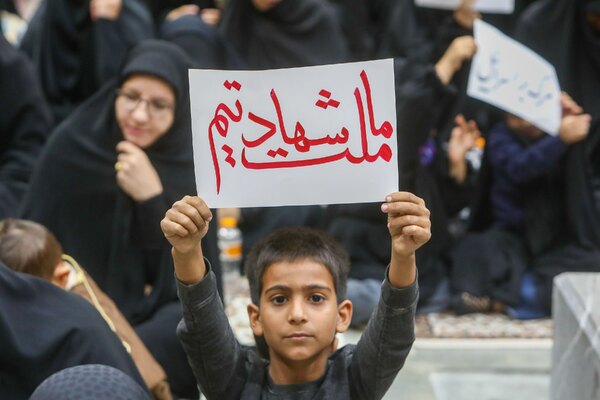 ما ملت شهادتیم
مرگ بر اسرائیل